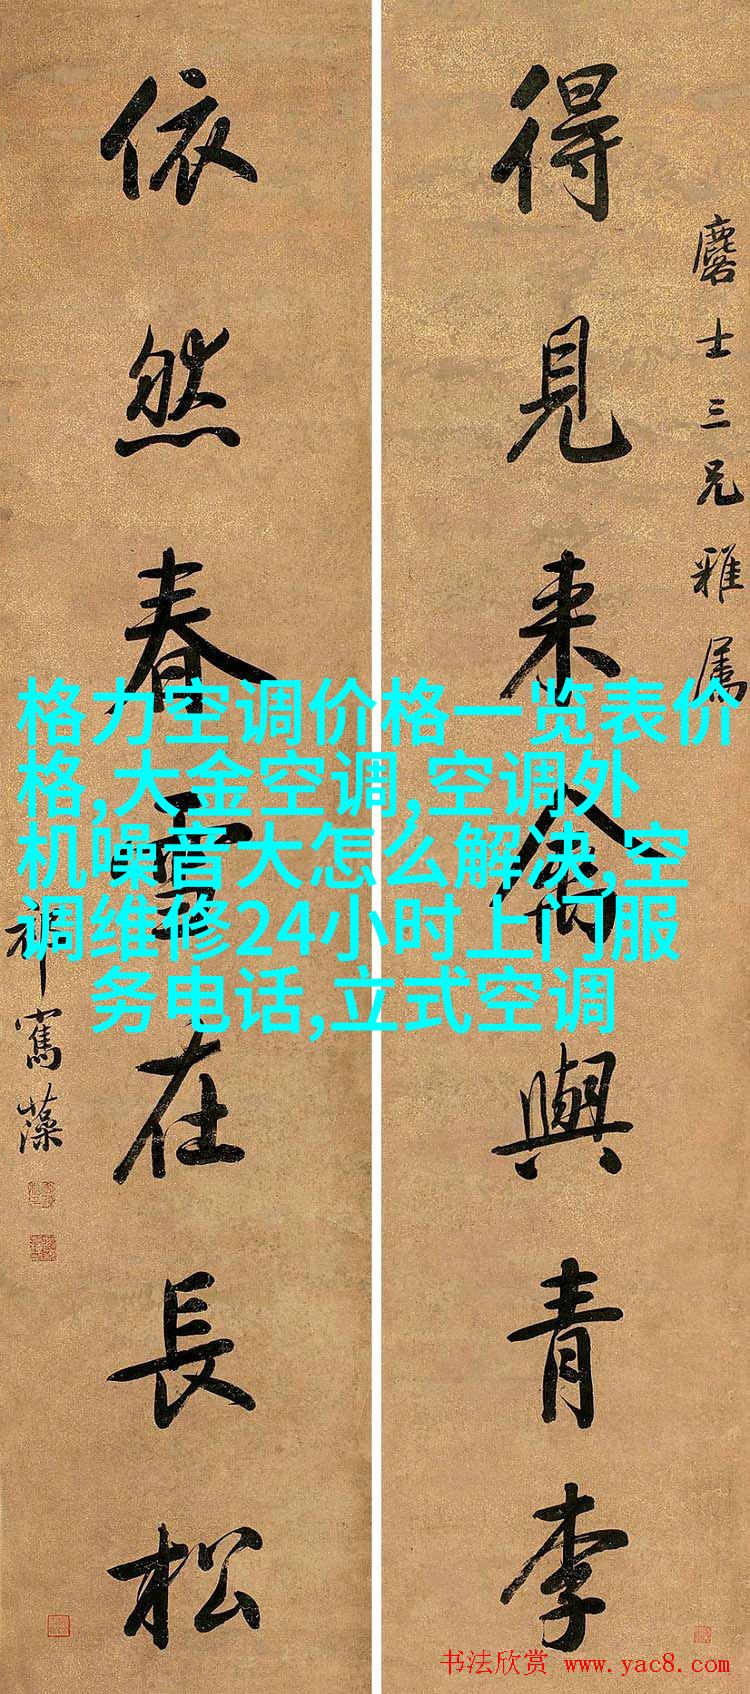 麐士三兄雅属
得見来禽與青李
依然春雪在長松
祁寯藻
格力空调价格一览表价
格,大金空调,空调外
机噪音大怎么解决,空
调维修24小时上门服
务电话,立式空调
书法欣赏 www.yac8.com